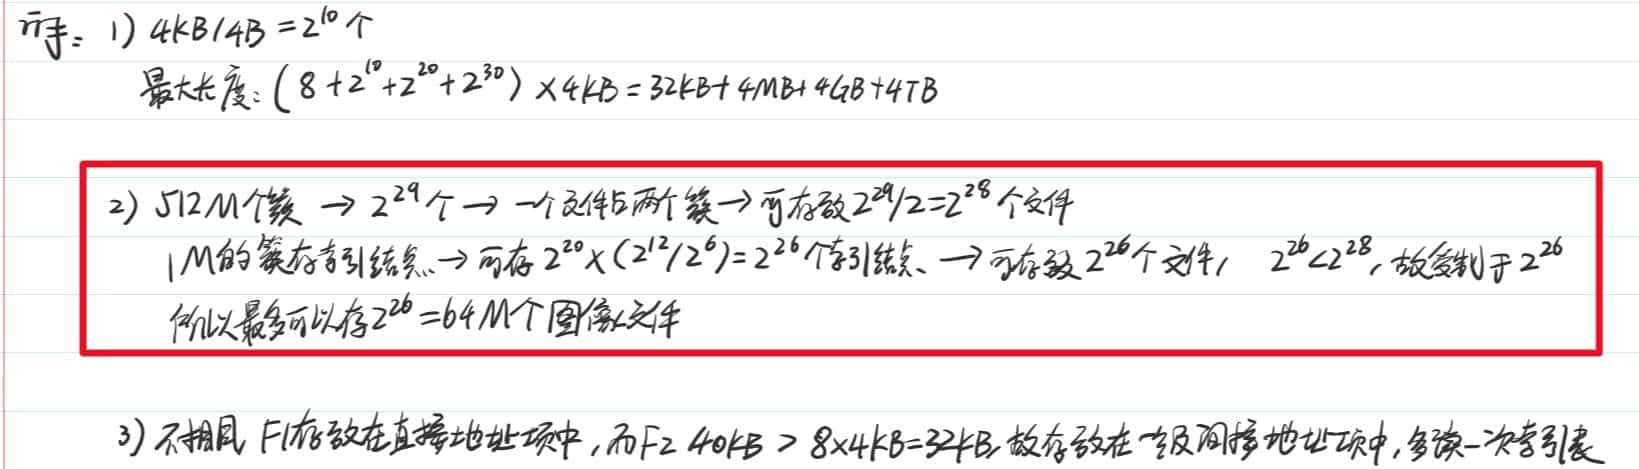 解: 1) 4KB/4B = 2¹⁰个
最大长度: (8+2¹⁰+2²⁰+2³⁰) ×4KB = 32KB+4MB+4GB+4TB
2) 512M个簇 → 2²⁹个 → 一个文件占两个簇 → 可存放2²⁹/2=2²⁸个文件
1M的簇存索引结点 → 可存 2²⁰×(2¹²/2⁶)=2²⁶个索引结点、→ 可存放2²⁶个文件, 2²⁶<2²⁸, 故受制于2²⁶
所以最多可以存2²⁶=64M个图像文件
3) 不相同 F1存放在直接地址项中,而F2 40KB > 8×4KB=32KB,故存放在一级间接地址项中,多读一次索引表